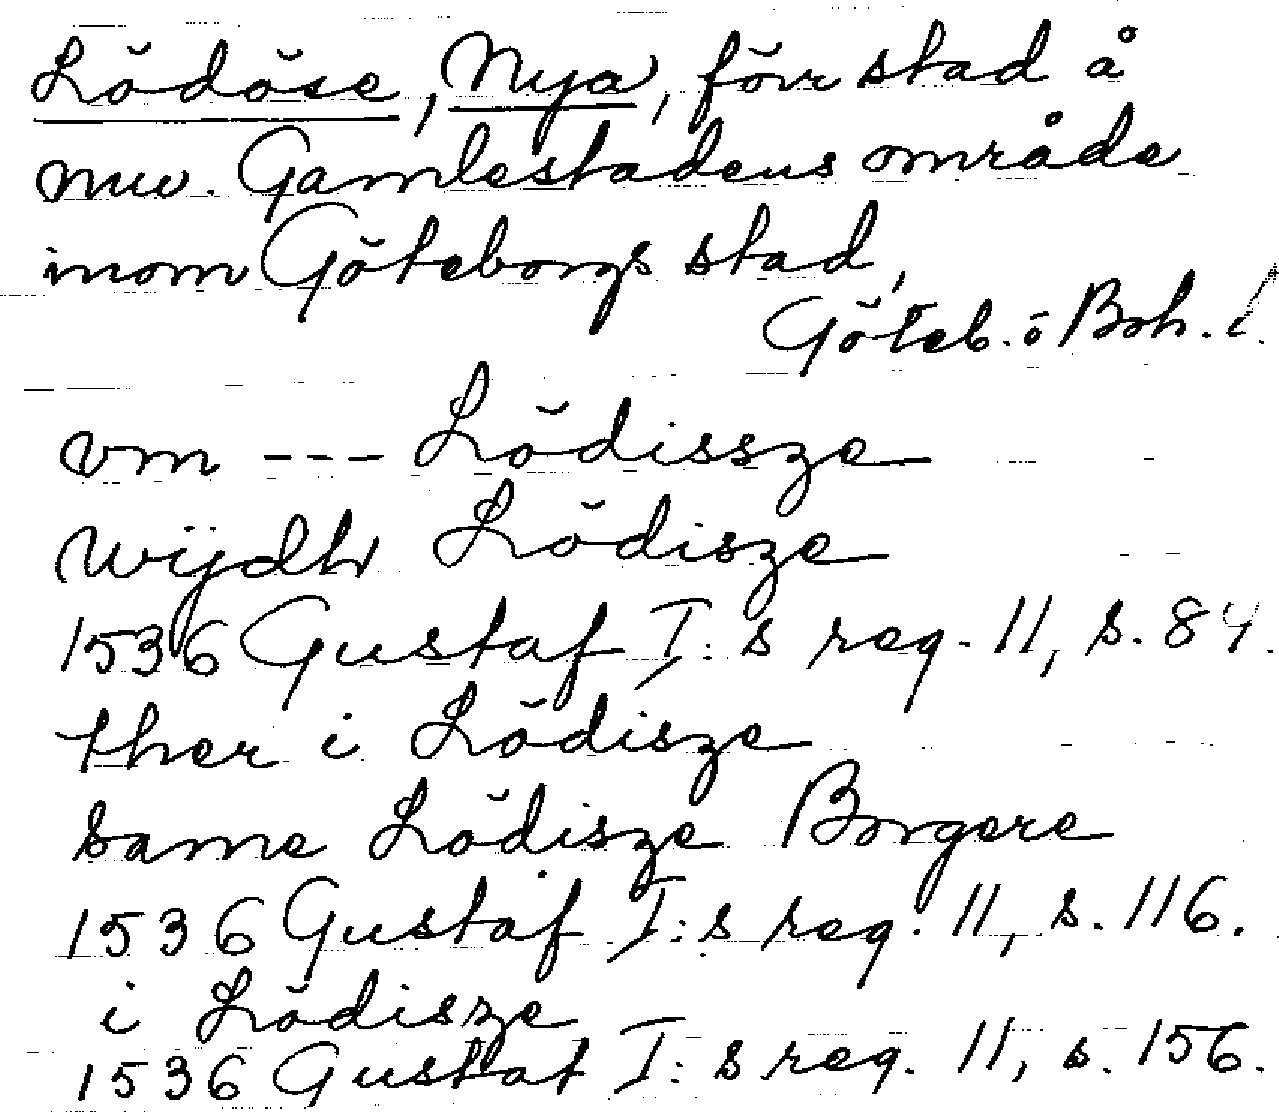 Lödöse, Nya, förr stad å
nuv. Gamlestadens område
inom Göteborgs stad,
Göteb. o Boh. l.
vm --- Lödissze
wijdh Lödisze
1536 Gustaf I:s reg. 11, s. 84.
ther i Lödisze
same Lödisze Borgere
1536 Gustaf I:s reg. 11, s. 116.
i Lödisze
1536 Gustaf I:s reg. 11, s. 156.